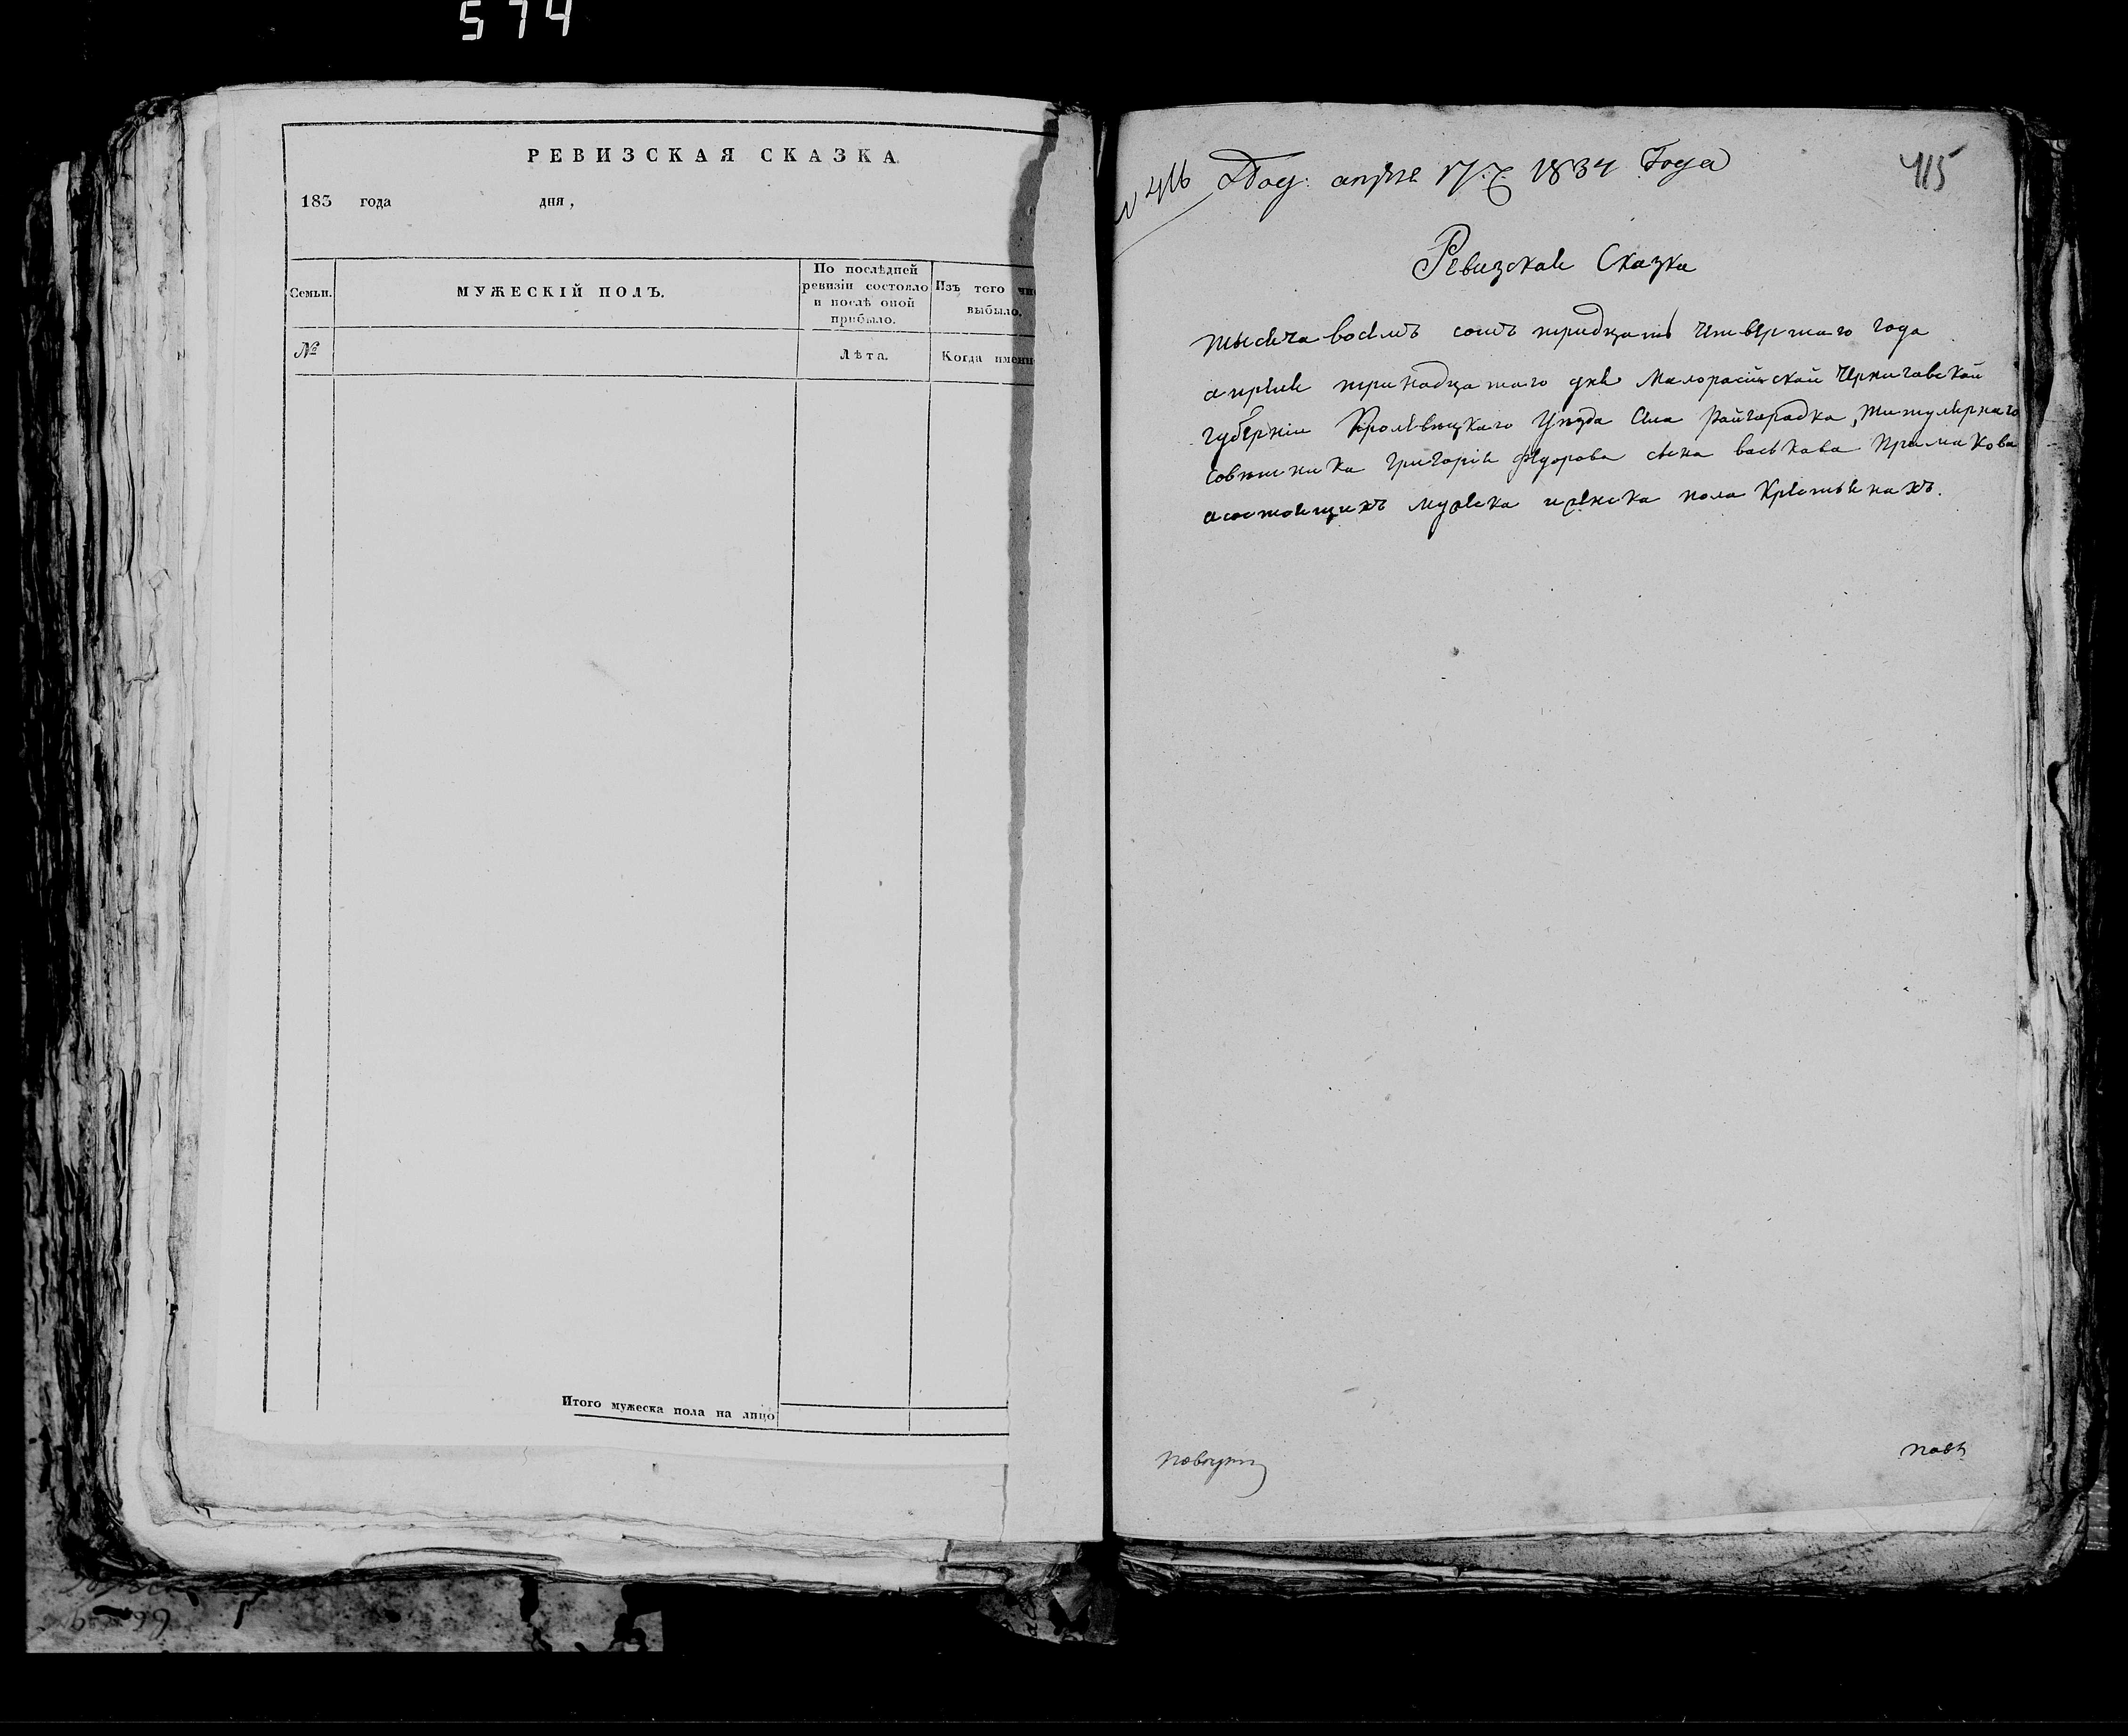 574
РЕВИЗСКАЯ СКАЗКА.
183 года дня,
Семьи.
МУЖЕСКІЙ ПОЛЪ.
По послѣдней ревизіи состояло и послѣ оной прибыло.
Изъ того чи
выбыло.
№
Лѣта.
Когда именн
Итого мужеска пола на лицо
415
№ 416 Под: апреля 17 1834 Года
Ревизская Сказка
тысяча восемъ сотъ тридцать четвертаго года
апреля тринадцатаго дня Малоросійской Черниговской
губерніи Кролевецкаго Уезда Села Райгородка, титулярнаго
советника Григорія Федорова сына Васькова Примакова
о состоящихъ мужеска и женска пола крестьянахъ.